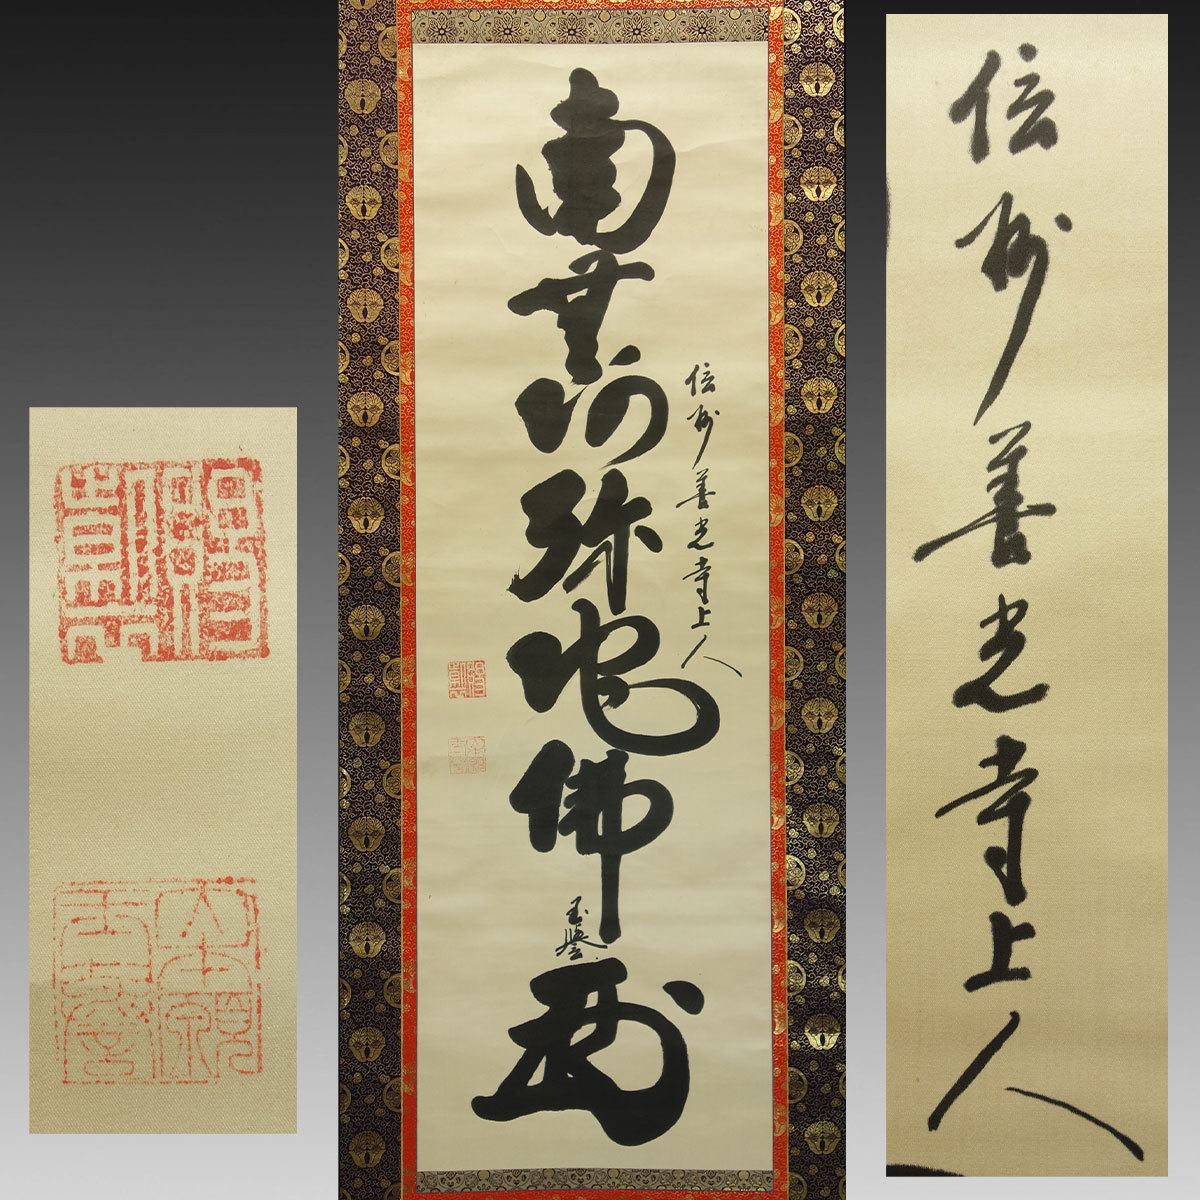 信州善光寺上人
南無阿弥陀佛
玉譽
信州善光寺上人